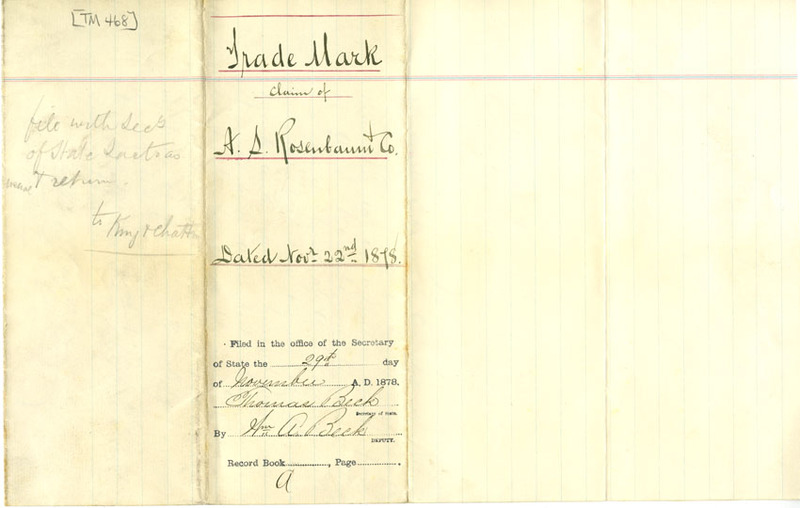 [TM 468]
file with Secy
of State
& return.
to
Trade Mark
Claim of
A. S. Rosenbaum & Co.
Dated Novr 22nd 1878.
Filed in the office of the Secretary
of State the 29th day
of November A. D. 1878.
Thomas Beck
Secretary of State.
By Wm A. Beck
DEPUTY.
Record Book........., Page..........
A